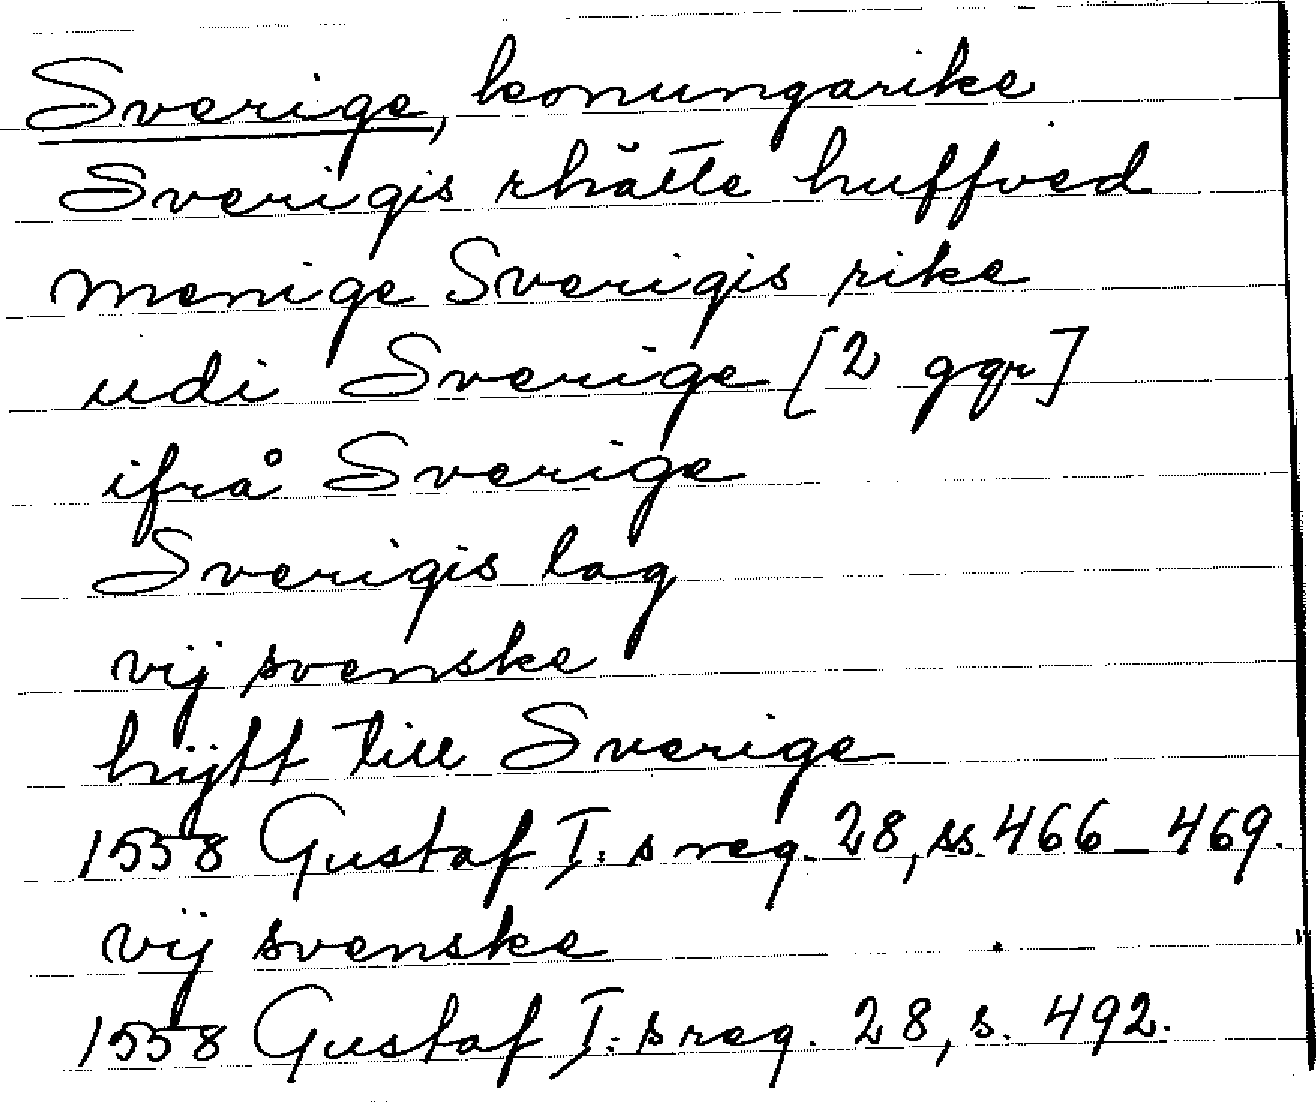 Sverige, konungarike
Sverigis rhätte huffved
menige Sverigis rike
udi Sverige [2 ggr]
ifrå Sverige
Sverigis lag
vij svenske
hijtt till Sverige
1558 Gustaf I:s reg. 28, ss. 466–469.
vij svenske
1558 Gustaf I:s reg. 28, s. 492.